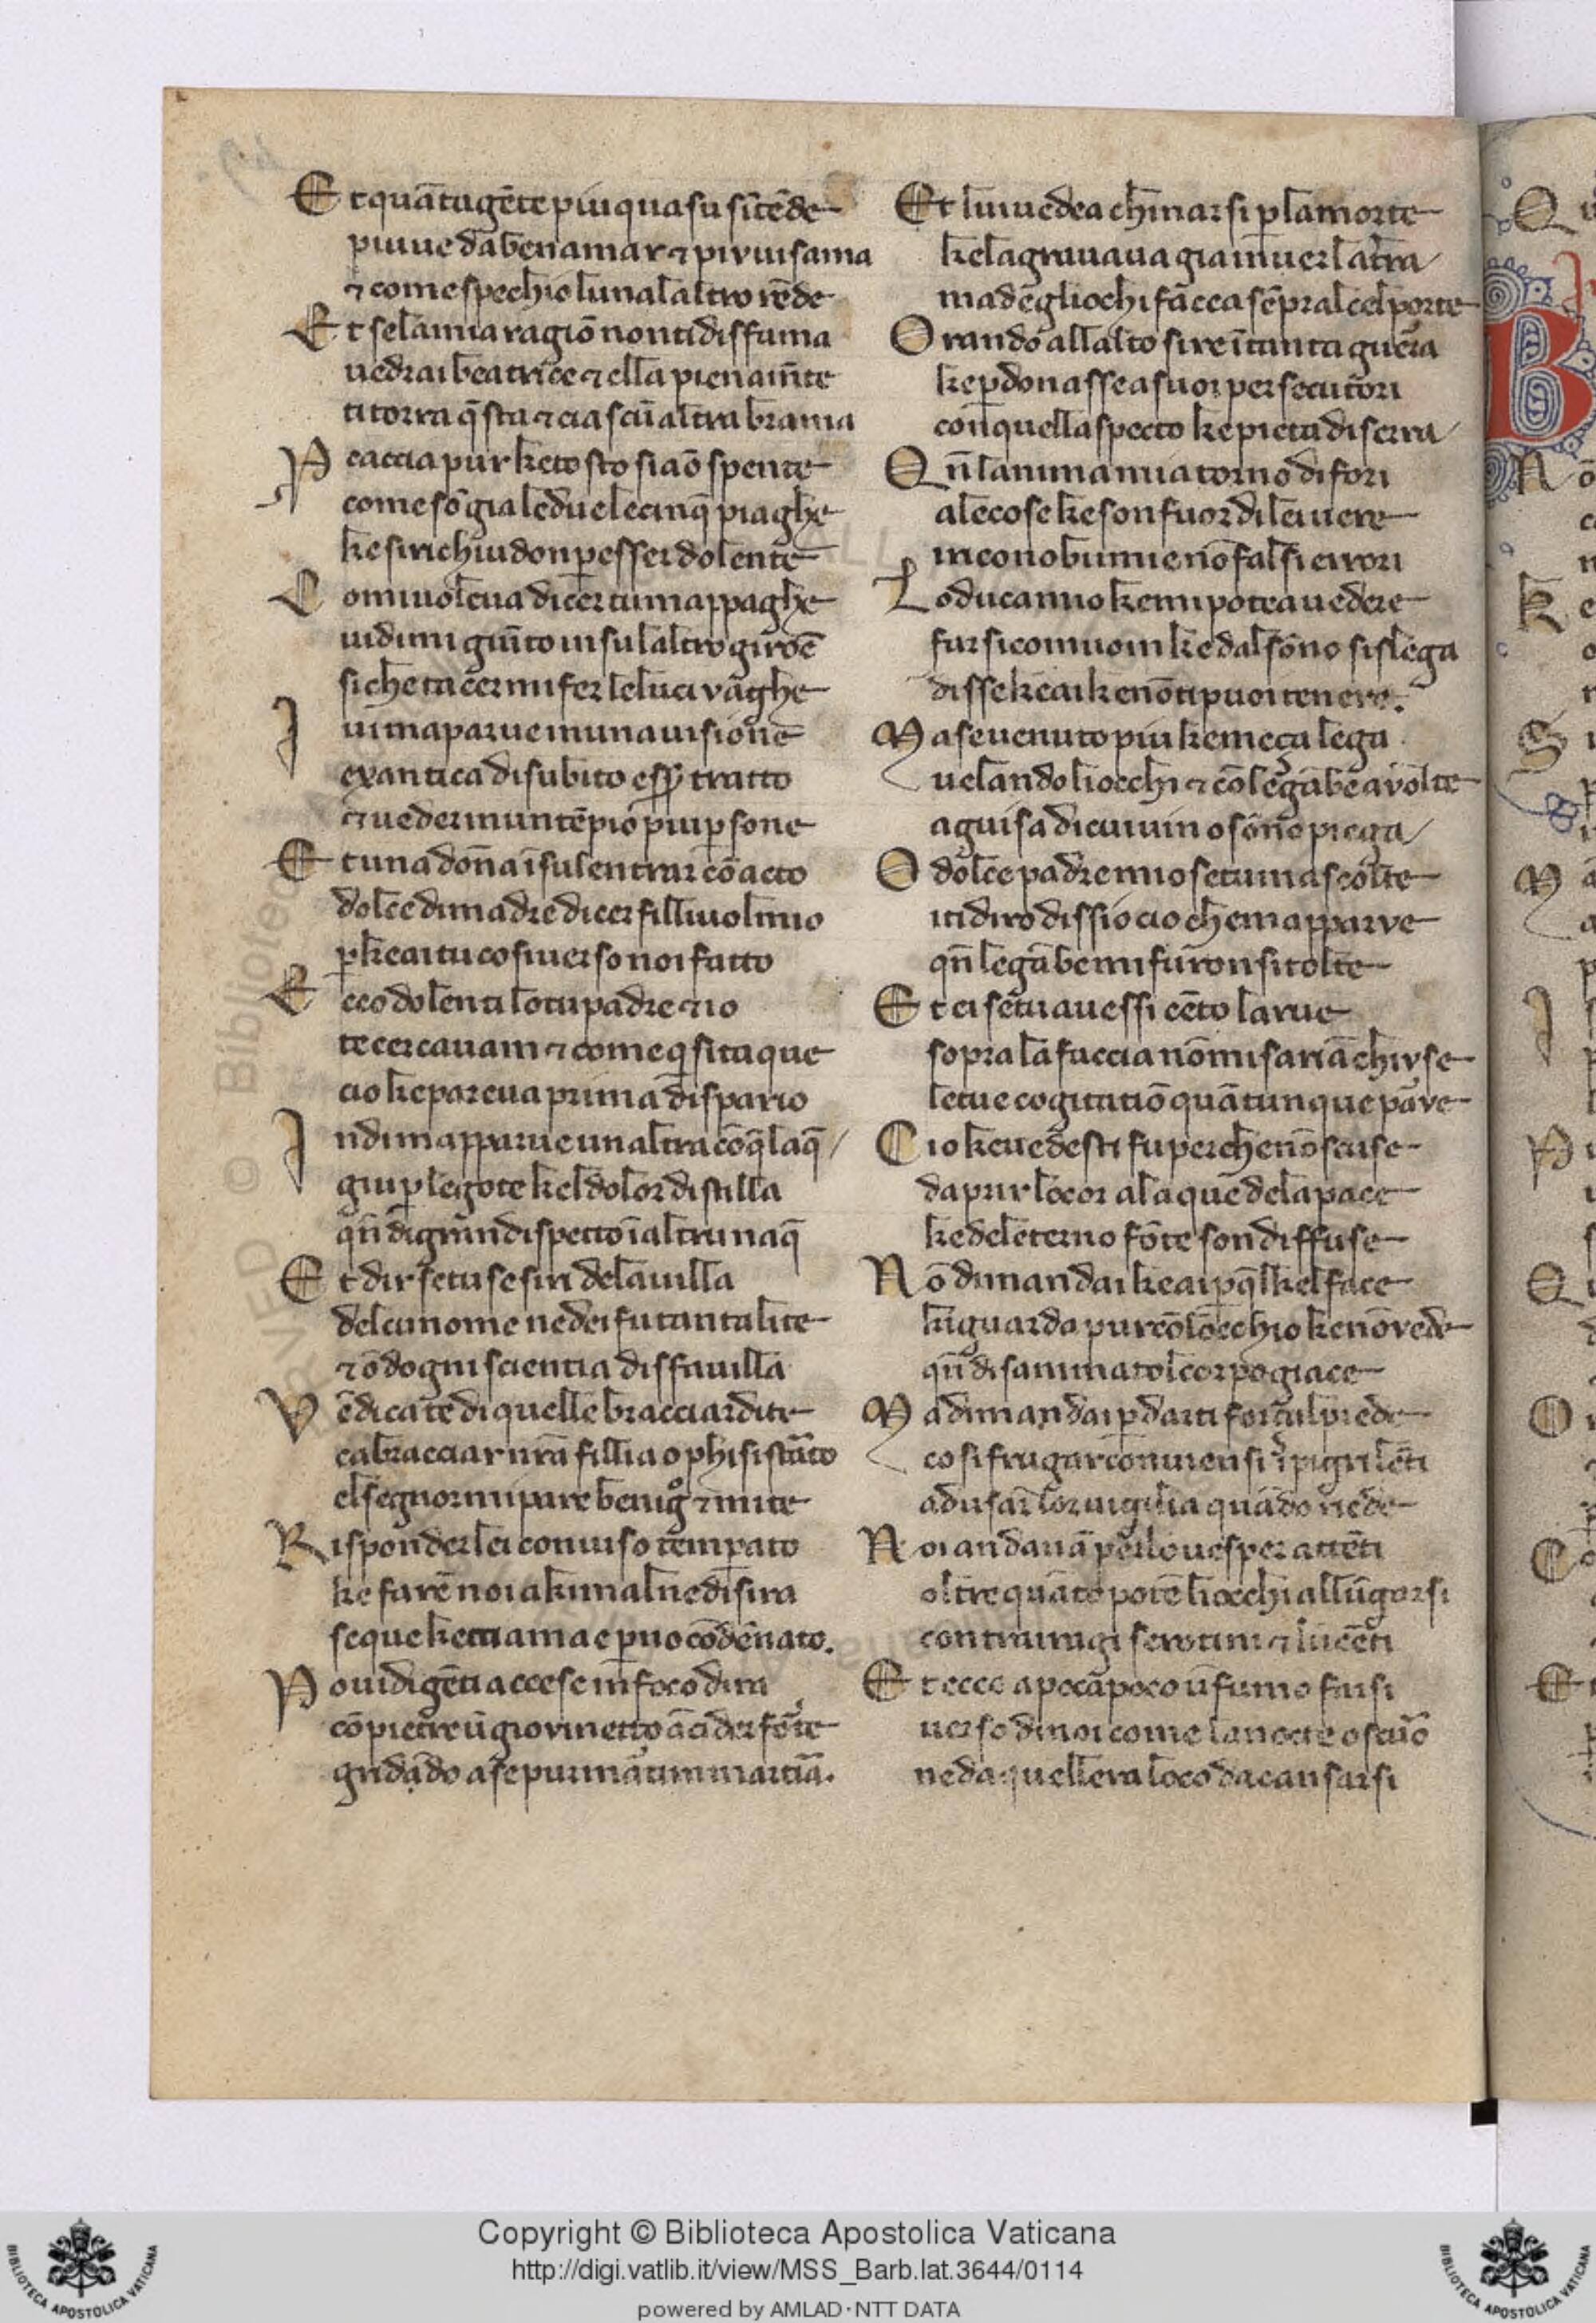 Et quāta gēte piu quasu sitēde
piu ue da ben amar ⁊ piu ui sama
⁊ come spechio luno alaltro rēde
Et se la mia ragiō non ti disfama
uedrai beatrice ⁊ ella pienamēte
ti torra q̄sta ⁊ ciascūaltra brama
Pcaccia pur ke tosto siaō spente
come sō gia le due le cinq̄ piaghe
ke si richiudon p esser dolente
Com io uoleua dicer tu mappaghe
uidimi giūto in sul altro girōe
si che tacer mi fer le luci vaghe
Iui maparue in una uisione
exantica di subito ess̄ tratto
⁊ ueder in un tēpio piu p̱sone
Et una dōna ī sul entrar cō acto
dolce di madre dicer filliuol mio
p̱ke ai tu cosi uerso noi fatto
Ecco dolenti lo tu padre ⁊ io
te cercauam ⁊ come q si taque
cio ke pareua prima dispario
Indi mapparue unaltra cō q̄laq̄
giu p̱ le gote kel dolor distilla
qn̄ di gran dispetto ī altrui naq̄
Et dir se tu se siri de la uilla
del cui nome nedei fu tanta lite
⁊ ōdogni scientia disfauilla
Vēdica te di quelle braccia ardite
cabracciar nrā fillia o phisistrāto
el segnor mi pare benigͦ ⁊ mite
Risponder lei con uiso temp̱ato
ke farē noi aki mal ne disira
se que ke ci ama e p̱ noi cōdēnato.
Po uidi gēti accese in foco dira
cō pietre ū giovinetto ācider forte
gridādo a se pur mārtira mārtira.
Et lui uedea chinarsi p̱ la morte
ke lagrauaua gia inuer la tr̄ra
ma de gli ochi facea sēpr al ciel porte
Orando allalto sire ī tanta guerra
ke p̱donasse a suoi persecutori
con quella specto ke pieta diserra
Qn̄ lanima mia torno di fori
a le cose ke son fuor di lei uere
in conobbi miei nō falsi errori
Lo duca mio ke mi potea uedere
far si com uom ke dal sōno si slega
disse ke ai ke nō ti puoi tenere.
Ma se uenuto piu ke mega lega
uelando li occhi ⁊ cō le gābe auolte
a guisa di cui uin o sōno piega
O dolce padre mio se tu mascolte
i ti diro dissio cio che mapparue
qn̄ le gābe mi furon si tolte
Et ei se tu auessi cēto larue
sopra la faccia nō mi sariā chiuse
le tue cogitatiō quātunque parue
Cio ke uedesti fu perche nō scuse
dapur lo cor ala que de la pace
ke del eterno fōte son diffuse
Nō dimandai ke ai p̱ q̄l kel face
ki guarda pur cō lōcchio ke nō vede
qn̄ disanimatol corpo giace
Ma dimandai p̱ darti forçal piede
cosi frugar conuiensi i pigri lēti
ad usar lor uigilia quādo riede
Noi andauā per lo uesper attēti
oltre quāto potē li occhi allūgarsi
contra i ragi serotini ⁊ lucēti
Et ecco a poco a poco ū fumo farsi
uerso di noi come la nocte oscuro
ne da quellera loco da cansarsi
Copyright © Biblioteca Apostolica Vaticana
http://digi.vatlib.it/view/MSS_Barb.lat.3644/0114
powered by AMLAD·NTT DATA